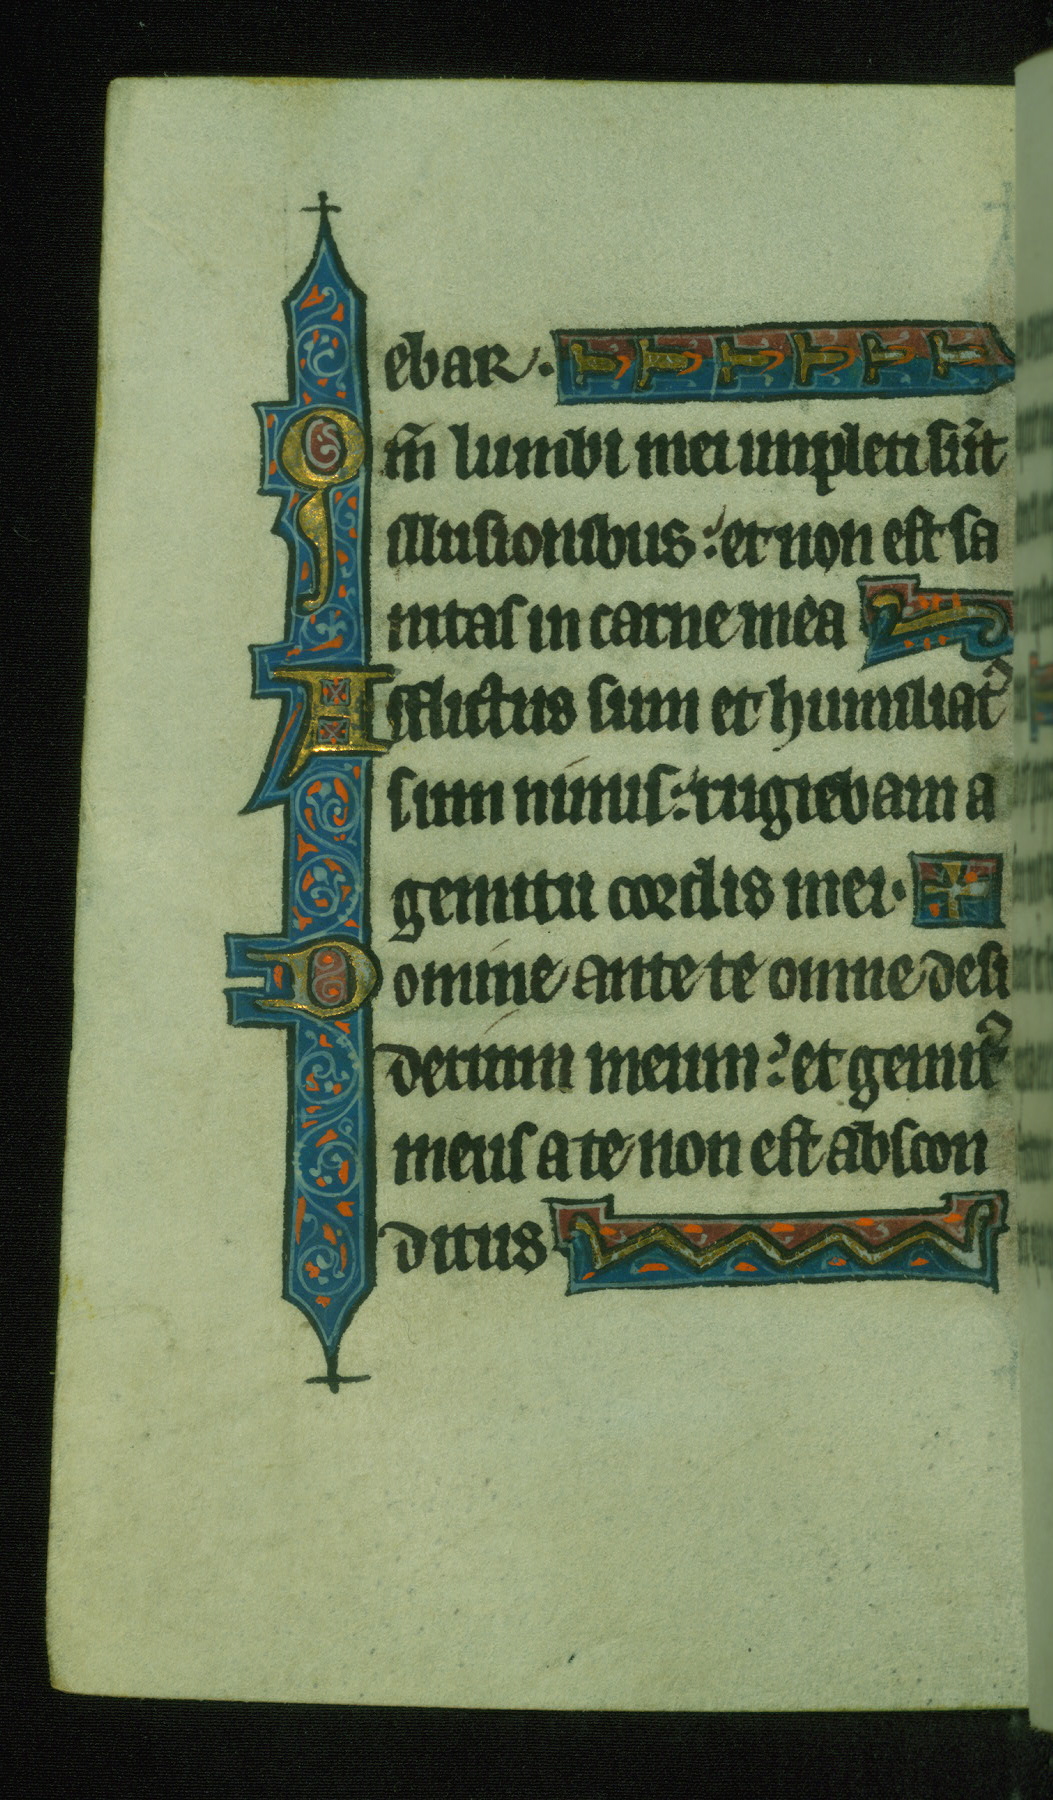 ebar.
Qm̄ lumbi mei impleti sūt
illusionibus: et non est sa
nitas in carne mea
Afflictus sum et humiliatꝰ
sum nimis: rugiebam a
gemitu cordis mei.
Domine ante te omne desi
derium meum: et gemitꝰ
meus a te non est abscon
ditus